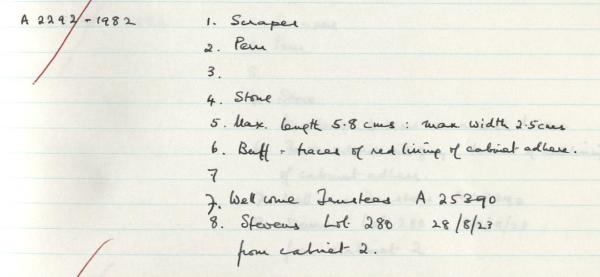 A 2292-1982 1. Scraper
2. Peru
3.
4. Stone
5. Max. length 5.8 cms : max width 2.5cms
6. Buff - traces of red lining of cabinet adhere.
7
7. Wellcome Trustees A 25390
8. Stevens Lot. 280 28/8/23
from cabinet 2.